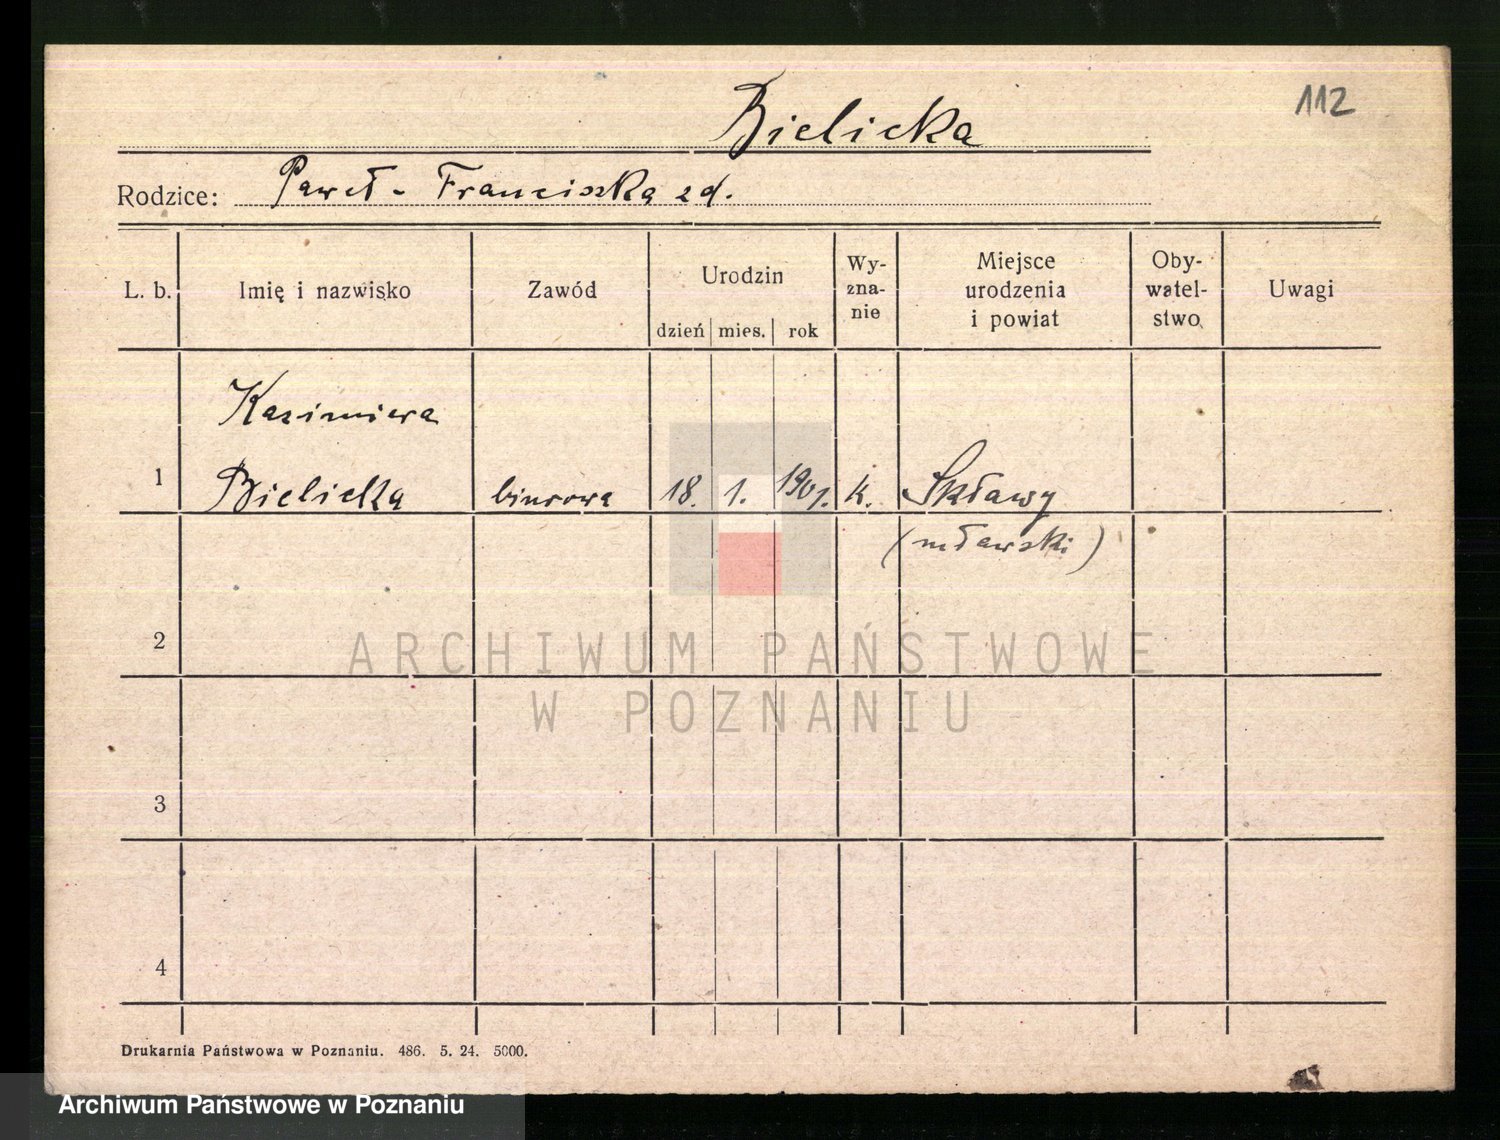 112
Bielicka
Rodzice: Paweł - Franciszka zd.
L. b. Imię i nazwisko Zawód Urodzin Wy-zna-nie Miejsce urodzenia i powiat Oby-watel-stwo Uwagi
dzień mies. rok
Kazimiera
1 Bielicka biurowa 18. 1. 1901. k. Skławy
(mławski)
2
ARCHIWUM PAŃSTWOWE
W POZNANIU
3
4
Drukarnia Państwowa w Poznaniu. 486. 5. 24. 5000.
Archiwum Państwowe w Poznaniu